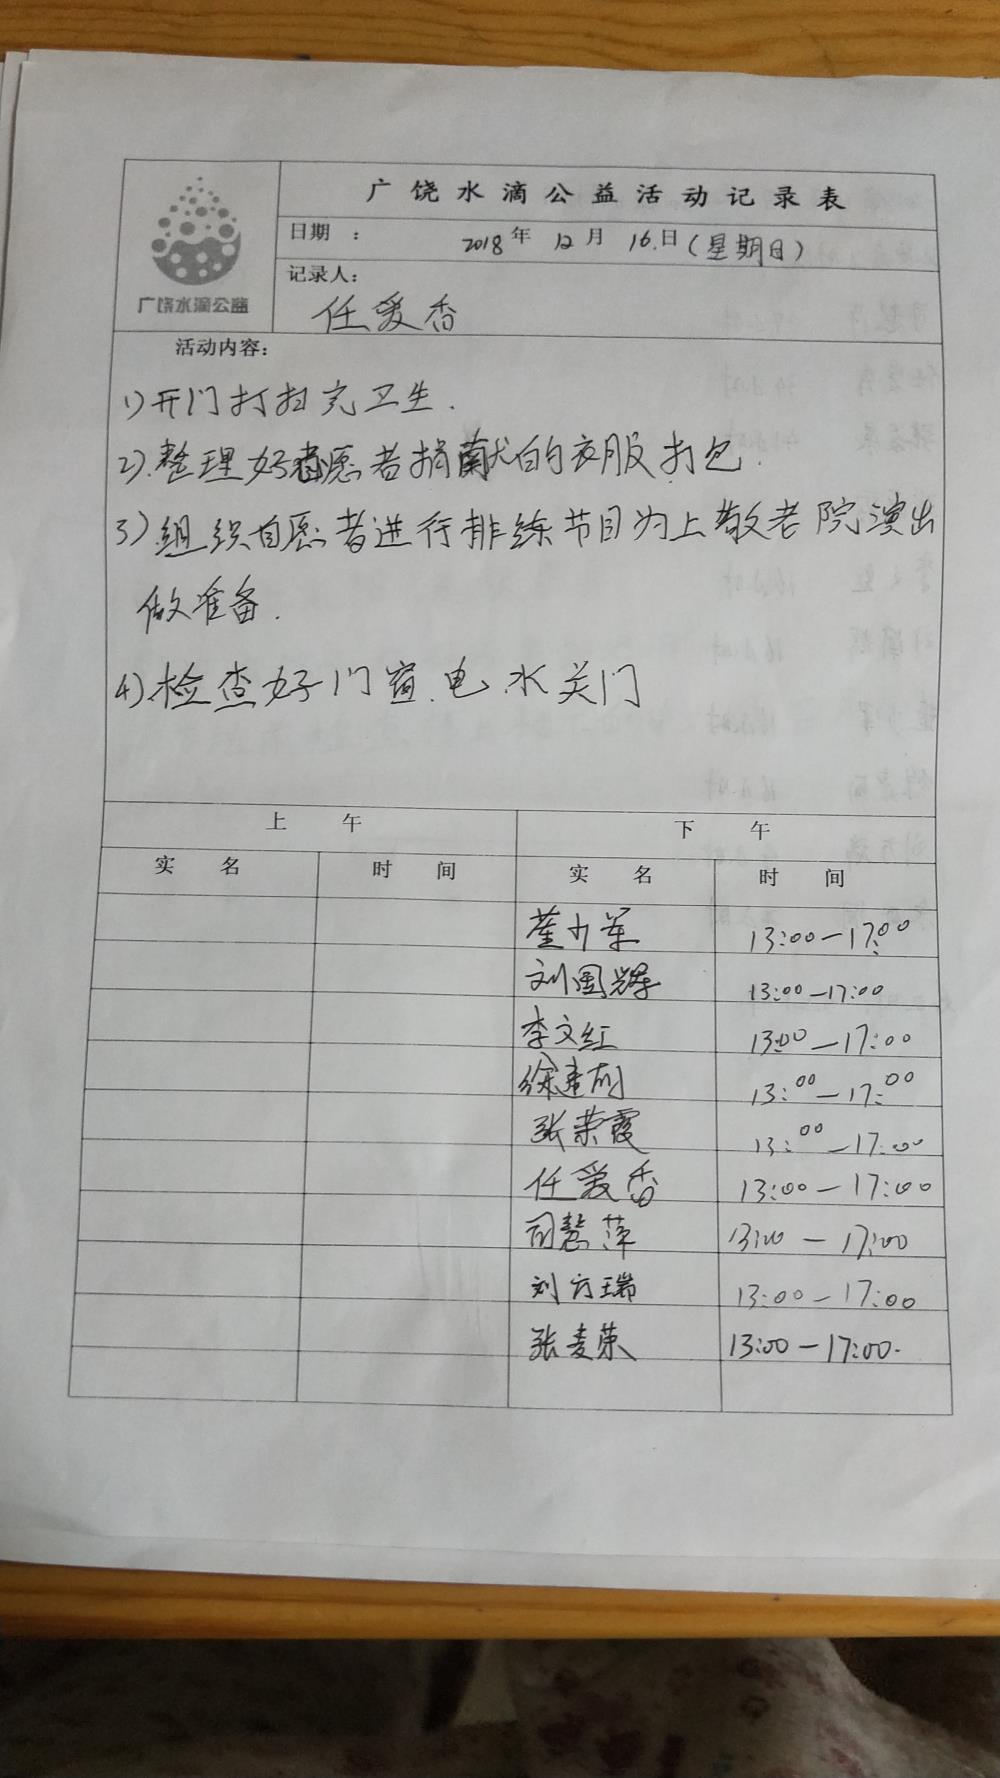 广饶水滴公益活动记录表
日期 ： 2018年 12月 16日(星期日)
广饶水滴公益
记录人：
任爱香
活动内容：
1)开门打扫完卫生.
2).整理好志愿者捐献的衣服打包.
3).组织自愿者进行排练节目为上敬老院演出
做准备.
4).检查好门窗.电.水关门
上 午 下 午
实 名 时 间 实 名 时 间
13:00—17:00
刘国辉 13:00—17:00
李文红 13:00—17:00
13:00—17:00
张荣霞 13:00—17:00
任爱香 13:00—17:00
司慧萍 13:00—17:00
刘方瑞 13:00—17:00
张麦荣 13:00—17:00.